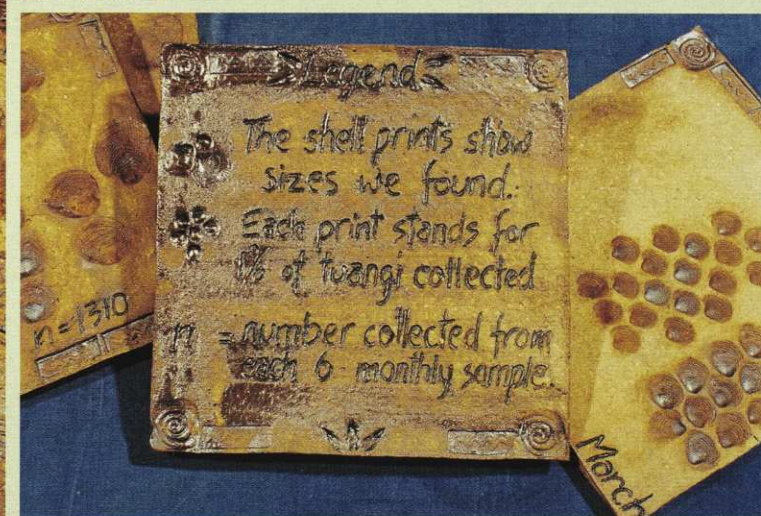 Legend
The shell prints show
sizes we found.
Each print stands for
1% of tuangi collected
n = number collected from
each 6 monthly sample.
n = 1310
March